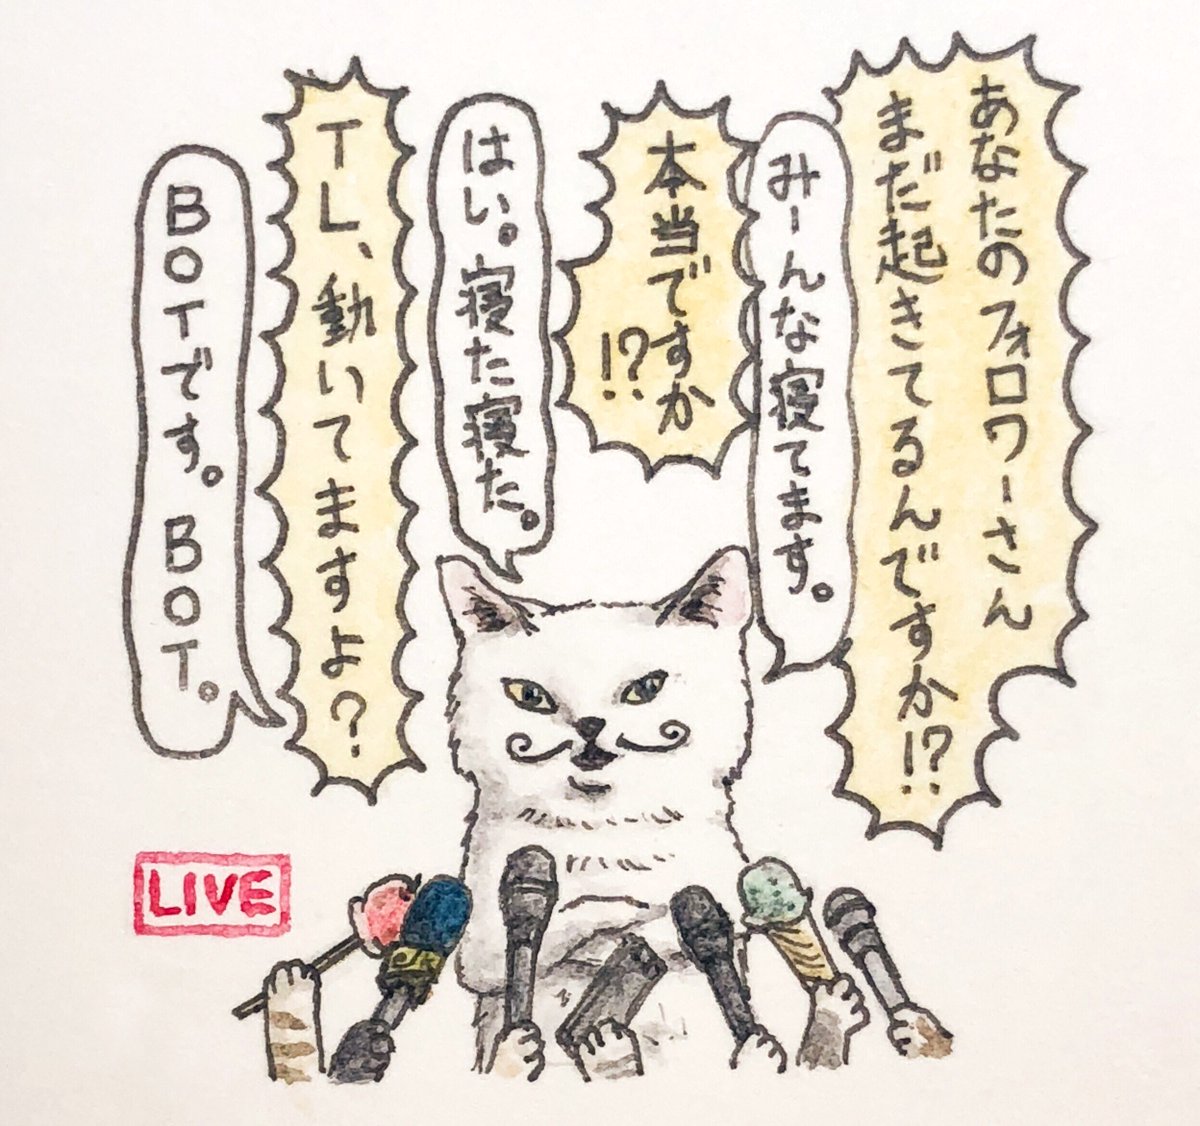 あなたのフォロワーさん
まだ起きてるんですか!?
みーんな寝てます。
本当ですか
!?
はい。寝た寝た。
TL、動いてますよ?
BOTです。BOT。
LIVE